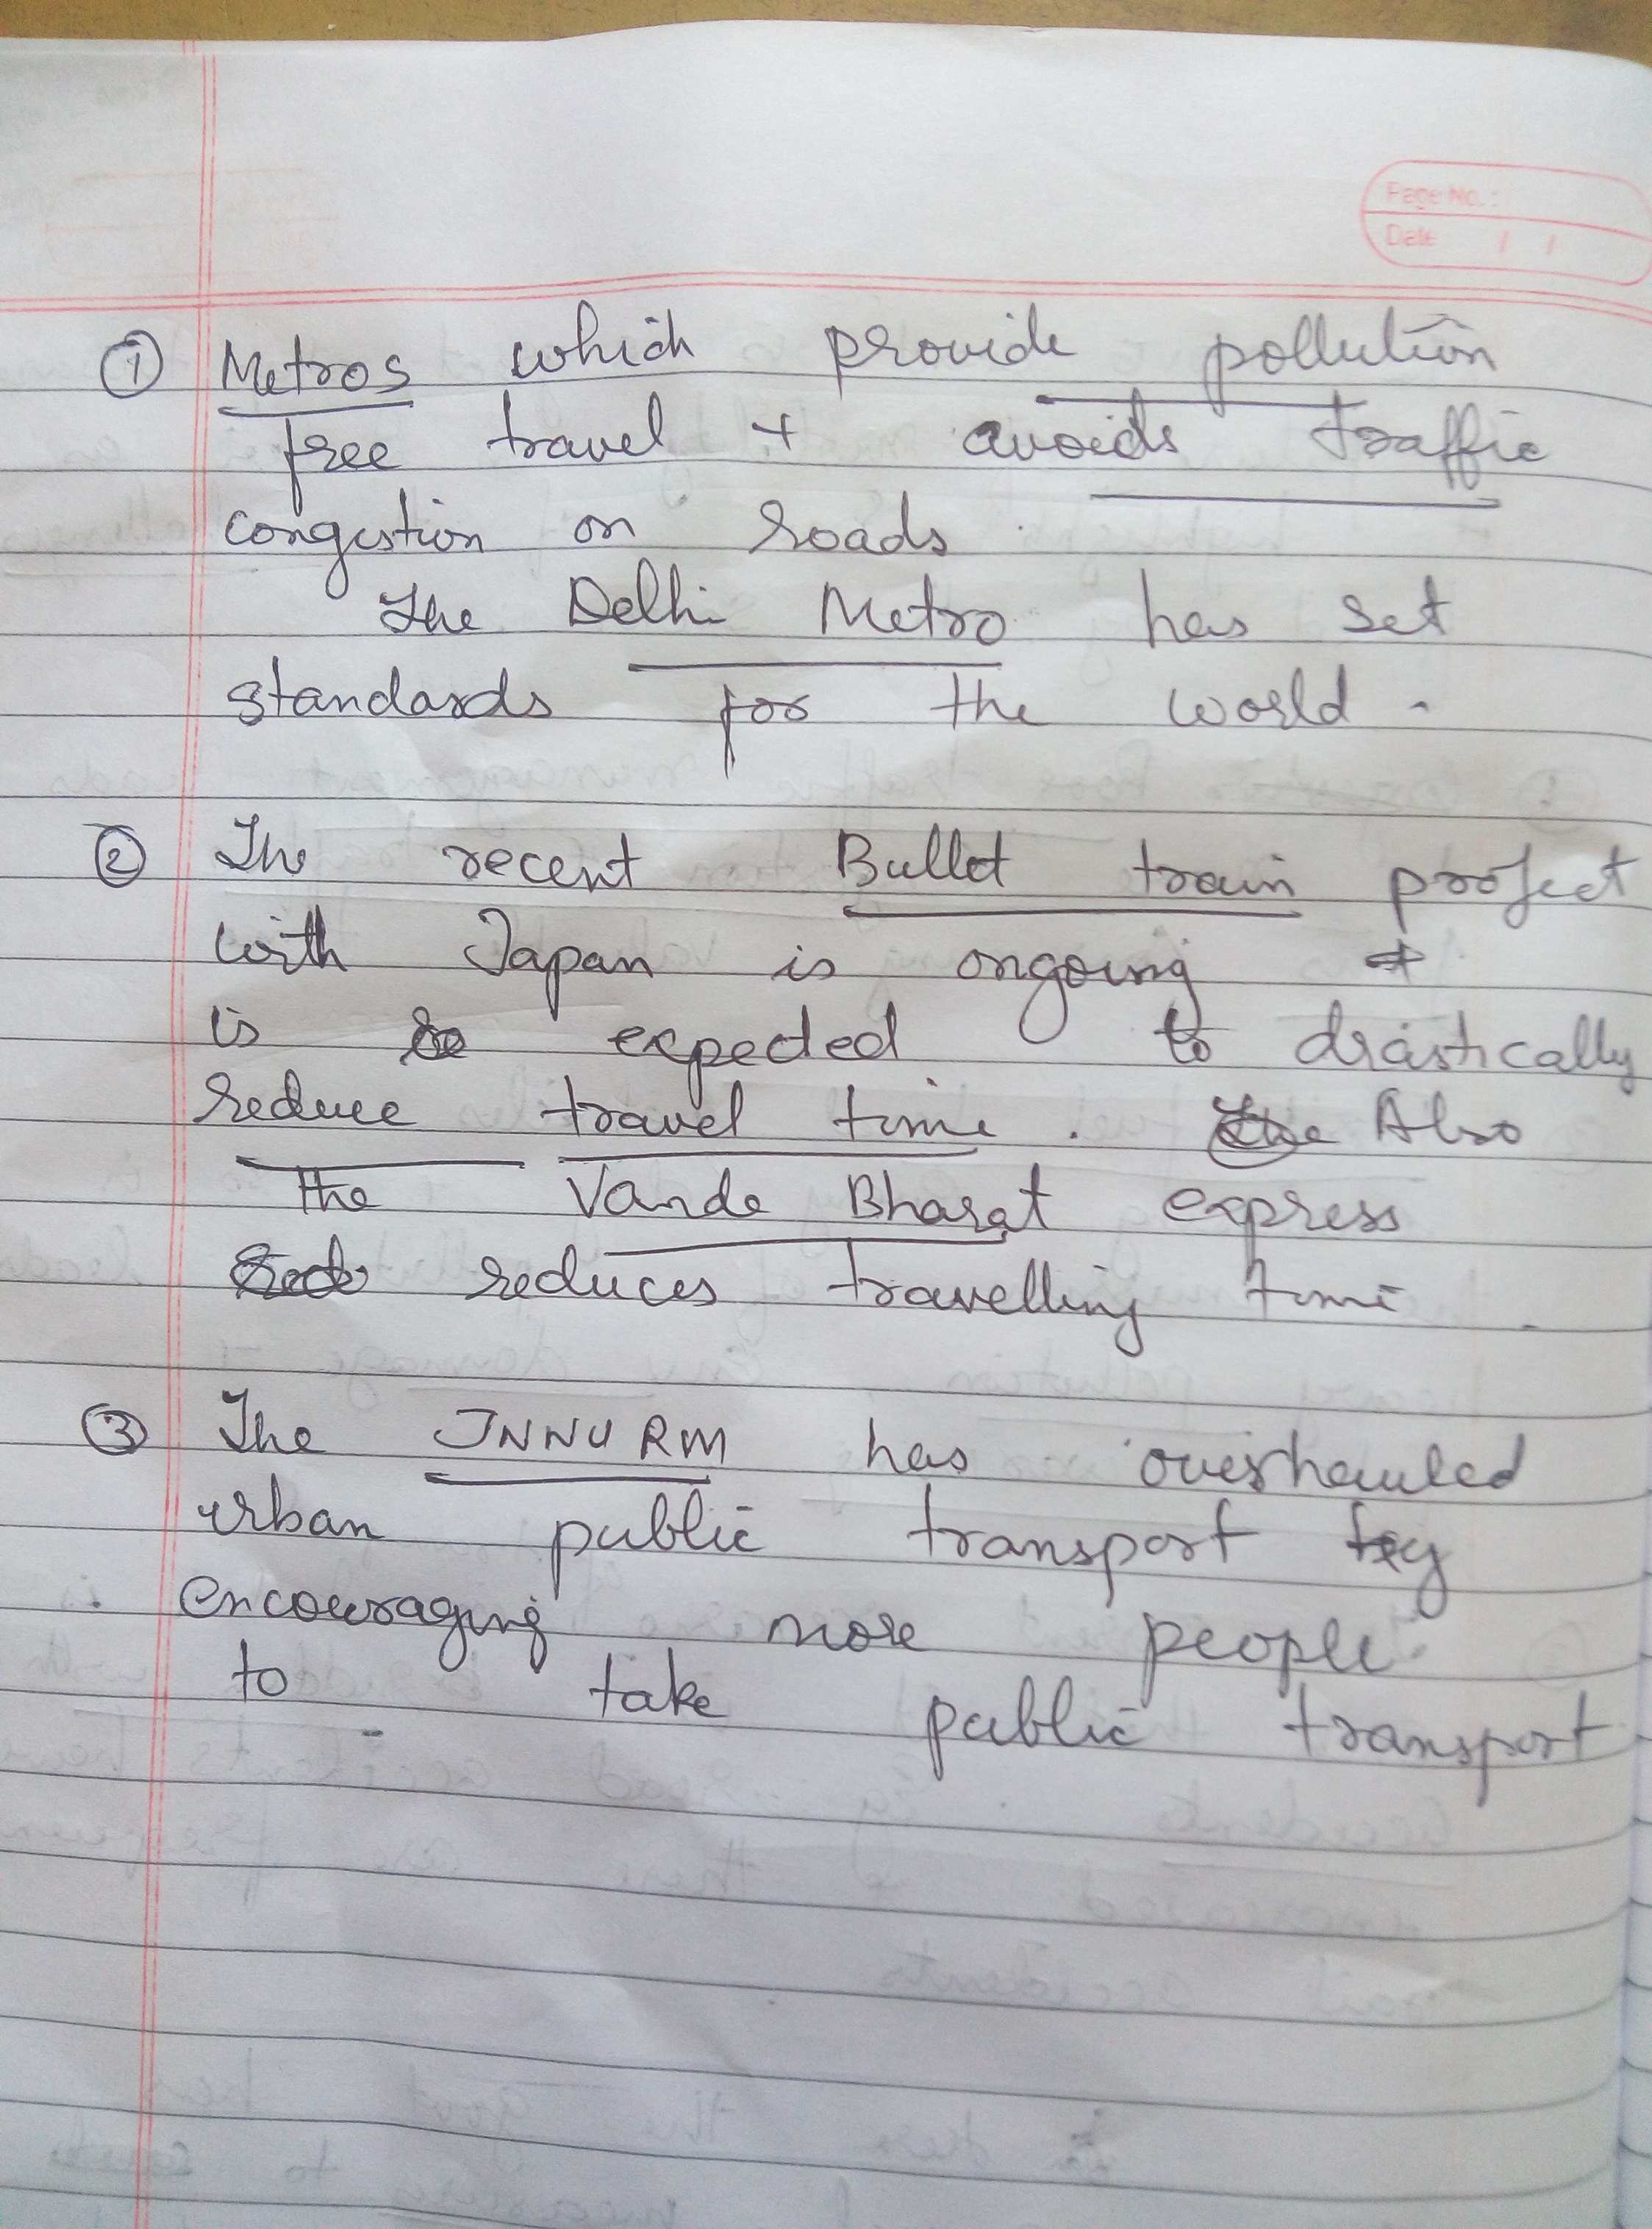 Page No. :
Date / /
① Metros which provide pollution
free travel + avoids traffic
congestion on roads.
The Delhi Metro has set
standards for the world.
② The recent Bullet train project
with Japan is ongoing +
is expected to drastically
reduce travel time. Also
the Vande Bharat express
reduces travelling time.
③ The JNNURM has overhauled
urban public transport by
encouraging more people
to take public transport